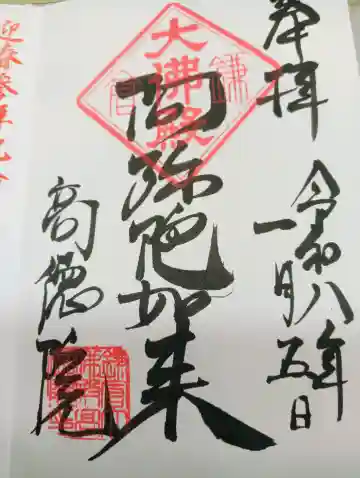 奉拝
令和八年
一月五日
大佛殿
鎌倉
阿弥陀如来
高徳院
迎春参拝記念